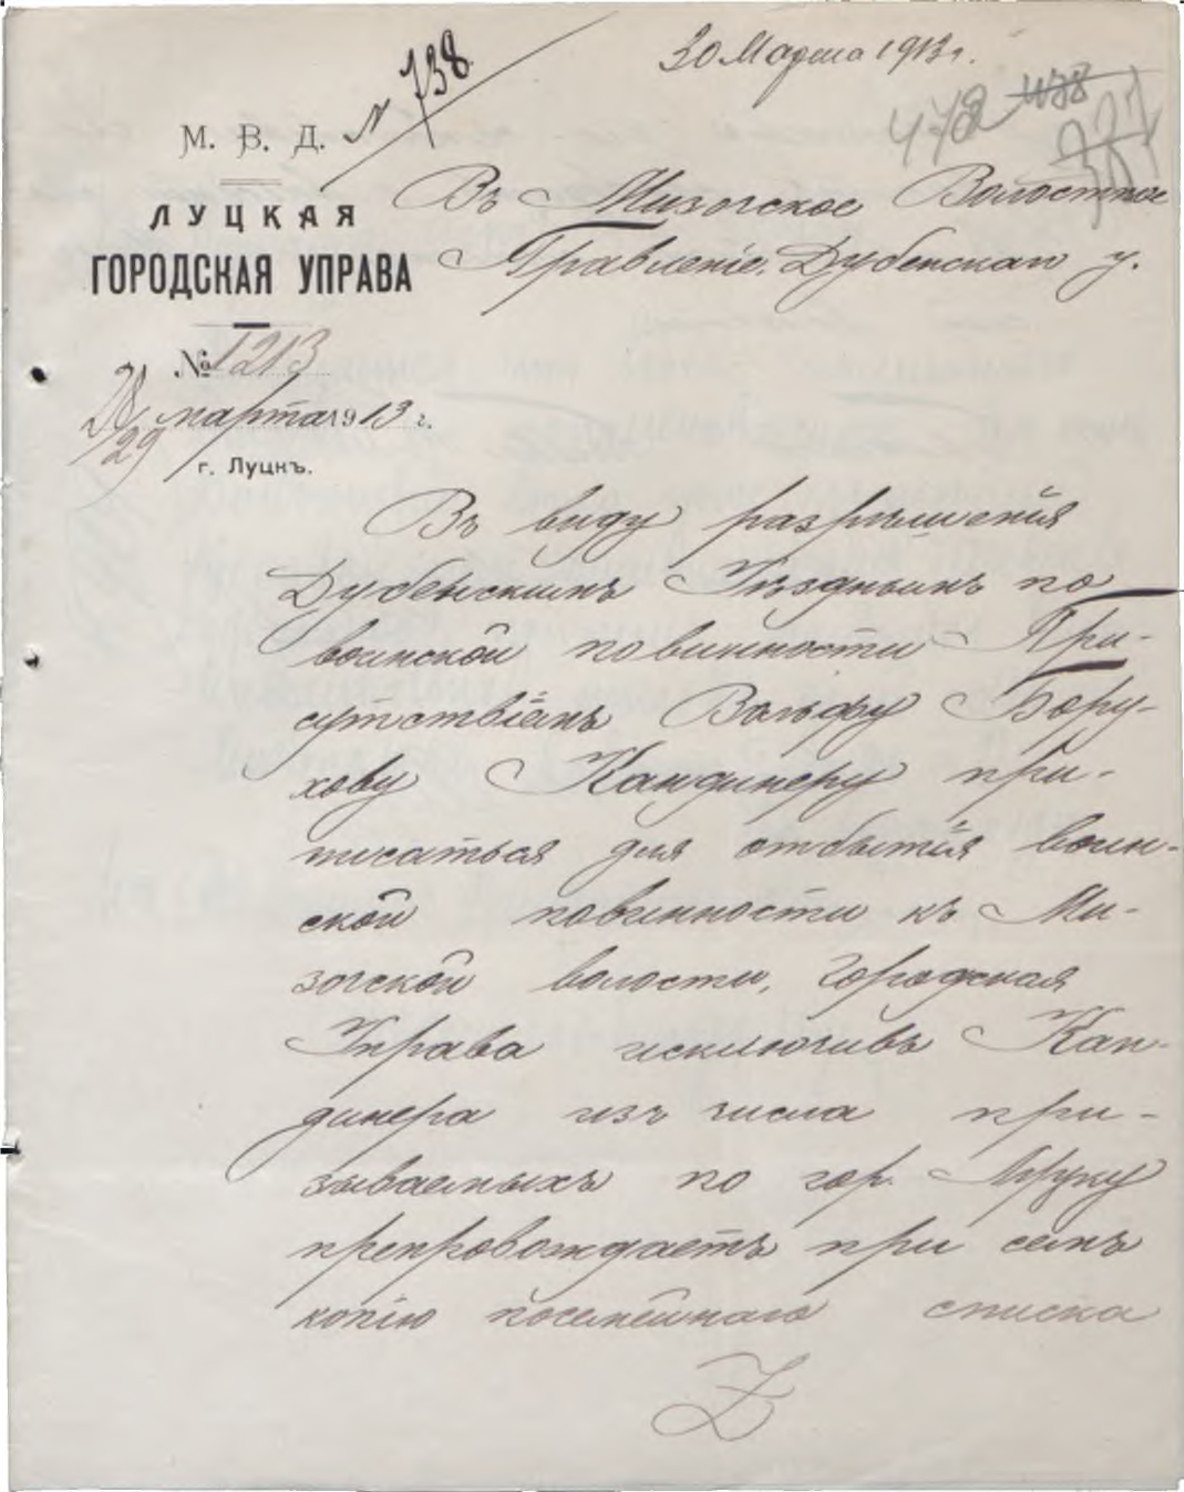 30 Марта 1913 г.
N 738
478
М. В. Д.
ЛУЦКАЯ
ГОРОДСКАЯ УПРАВА
№ 1213
28/29 марта 1913 г.
г. Луцкъ.
Въ Мизочское Волостное
Правленіе, Дубенскаго у.
Въ виду разрѣшенія
Дубенскимъ Уѣзднымъ по
воинской повинности При-
сутствіемъ Вольфу Бору-
хову Кандинеру при-
писаться для отбытія воин-
ской повинности къ Ми-
зочской волости, Городская
Управа исключивъ Кан-
динера изъ числа при-
зываемыхъ по гор. Луцку
препровождаетъ при семъ
копію посемейнаго списка